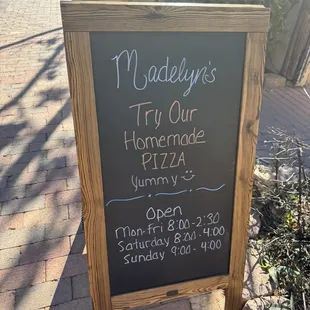 Madelyn's
Try Our
Homemade
PIZZA
yummy
Open
Mon-Fri 8:00-2:30
Saturday 8:00-4:00
Sunday 9:00-4:00